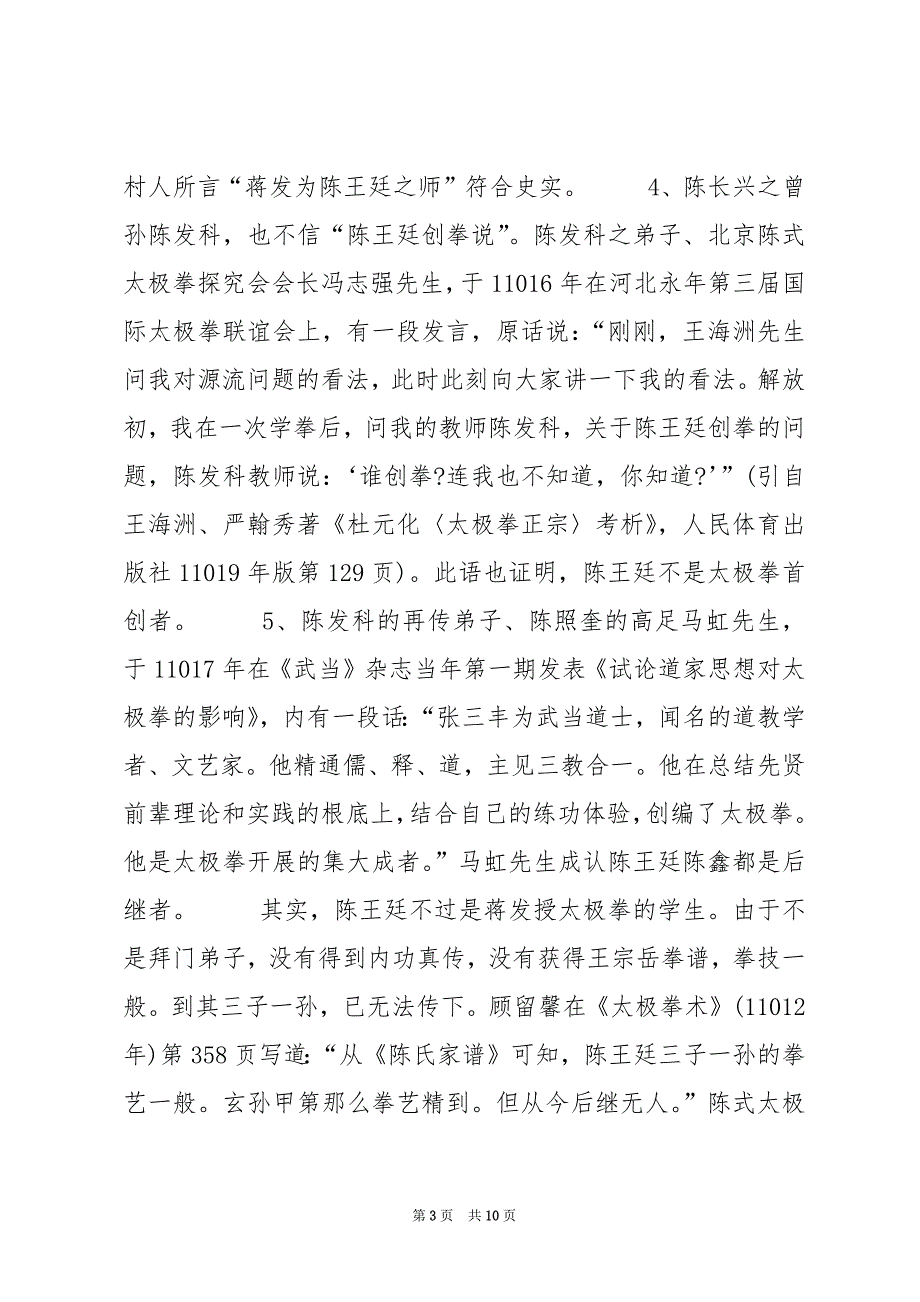 村人所言“蒋发为陈王廷之师”符合史实。 4、陈长兴之曾
孙陈发科，也不信“陈王廷创拳说”。陈发科之弟子、北京陈式
太极拳探究会会长冯志强先生，于 11016 年在河北永年第三届国
际太极拳联谊会上，有一段发言，原话说：“刚刚，王海洲先生
问我对源流问题的看法，此时此刻向大家讲一下我的看法。解放
初，我在一次学拳后，问我的教师陈发科，关于陈王廷创拳的问
题，陈发科教师说：‘谁创拳?连我也不知道，你知道?’”(引自
王海洲、严翰秀著《杜元化〈太极拳正宗〉考析》，人民体育出
版社 11019 年版第 129 页)。此语也证明，陈王廷不是太极拳首
创者。 5、陈发科的再传弟子、陈照奎的高足马虹先生，
于 11017 年在《武当》杂志当年第一期发表《试论道家思想对太
极拳的影响》，内有一段话：“张三丰为武当道士，闻名的道教学
者、文艺家。他精通儒、释、道，主见三教合一。他在总结先贤
前辈理论和实践的根底上，结合自己的练功体验，创编了太极拳。
他是太极拳开展的集大成者。”马虹先生成认陈王廷陈鑫都是后
继者。 其实，陈王廷不过是蒋发授太极拳的学生。由于不
是拜门弟子，没有得到内功真传，没有获得王宗岳拳谱，拳技一
般。到其三子一孙，已无法传下。顾留馨在《太极拳术》(11012
年)第 358 页写道：“从《陈氏家谱》可知，陈王廷三子一孙的拳
艺一般。玄孙甲第那么拳艺精到。但从今后继无人。”陈式太极
第 3 页 共 10 页